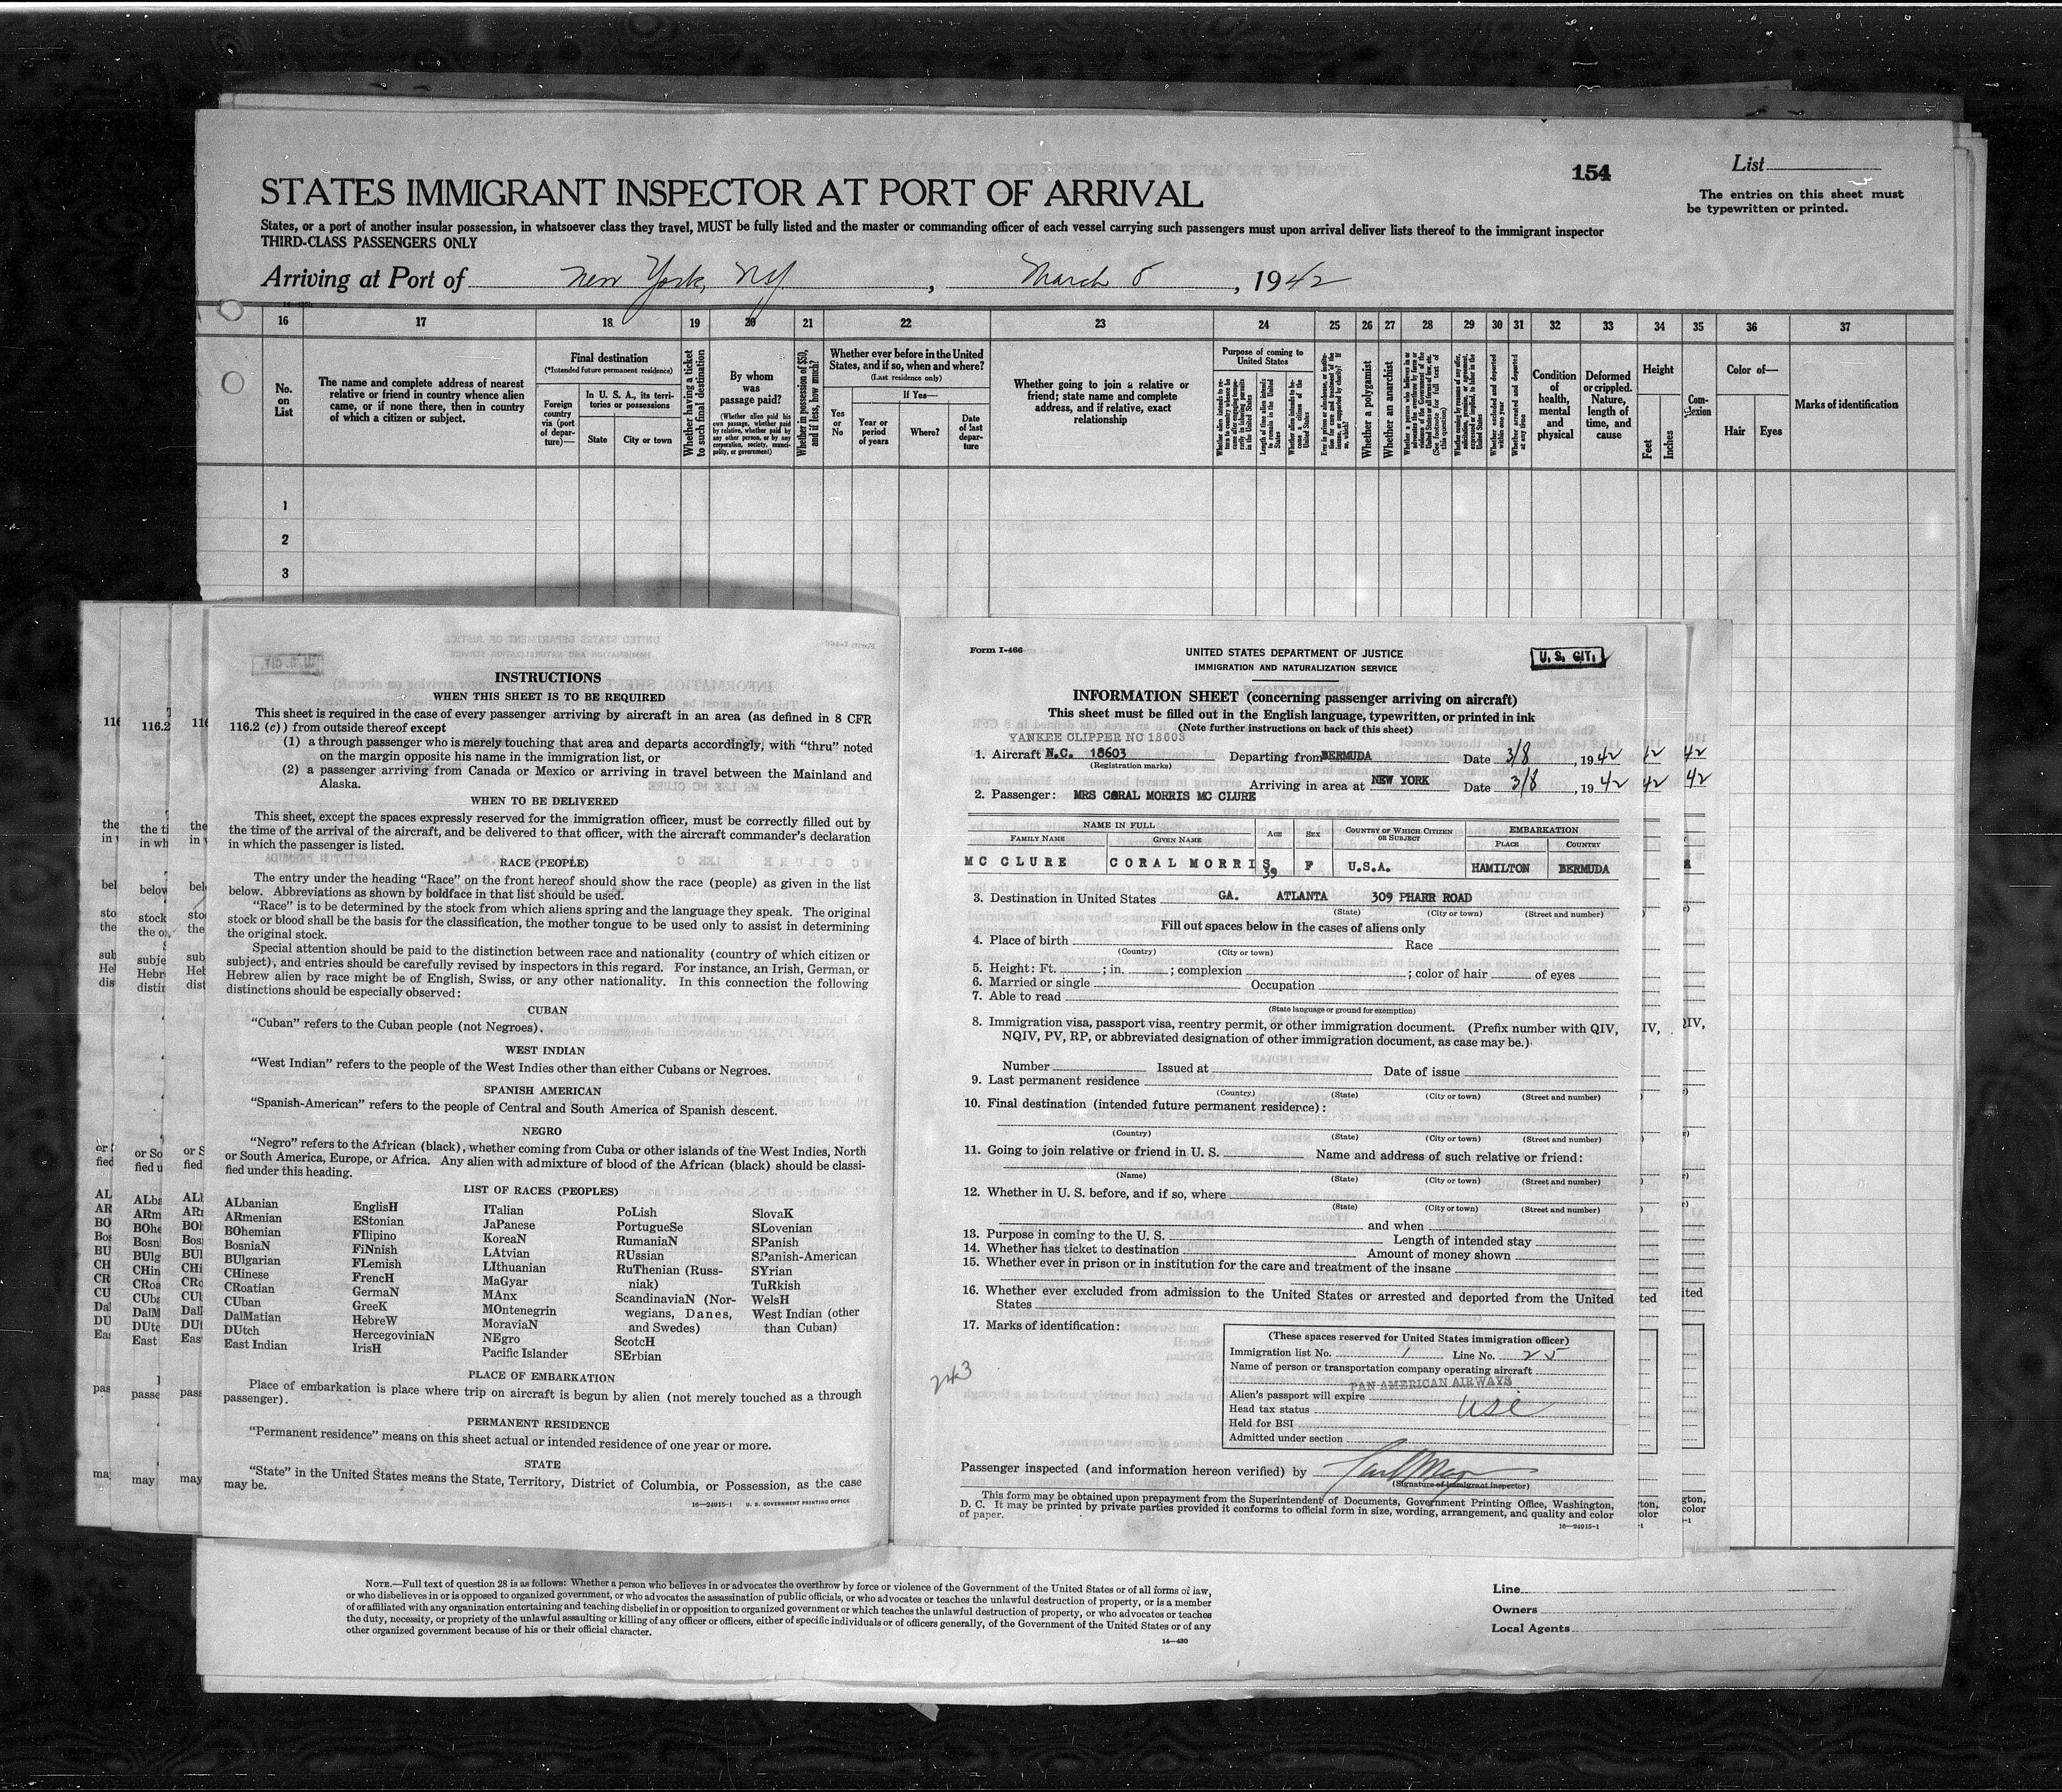 154
List
The entries on this sheet must
be typewritten or printed.
STATES IMMIGRANT INSPECTOR AT PORT OF ARRIVAL
States, or a port of another insular possession, in whatsoever class they travel, MUST be fully listed and the master or commanding officer of each vessel carrying such passengers must upon arrival deliver lists thereof to the immigrant inspector
THIRD-CLASS PASSENGERS ONLY
Arriving at Port of New York, NY, March 8, 1942
16 17 18 19 20 21 22 23 24 25 26 27 28 29 30 31 32 33 34 35 36 37
No.
on
List
The name and complete address of nearest
relative or friend in country whence alien
came, or if none there, then in country
of which a citizen or subject.
Final destination
(*Intended future permanent residence)
Foreign
country
via (port
of depar-
ture)—
In U. S. A., its terri-
tories or possessions
State
City or town
Whether having a ticket
to such final destination
By whom
was
passage paid?
(Whether alien paid his
own passage, whether paid
by relative, whether paid by
any other person, or by any
corporation, society, munici-
pality, or government)
Whether in possession of $50,
and if less, how much?
Whether ever before in the United
States, and if so, when and where?
(Last residence only)
Yes
or
No
If Yes—
Year or
period
of years
Where?
Date
of last
depar-
ture
Whether going to join a relative or
friend; state name and complete
address, and if relative, exact
relationship
Purpose of coming to
United States
Length of time alien intends
to remain in the United
States
Whether alien intends to be-
come a citizen of the
United States
Whether a polygamist
Whether an anarchist
Whether excluded and deported
within one year
Whether arrested and deported
at any time
Condition
of
health,
mental
and
physical
Deformed
or crippled.
Nature,
length of
time, and
cause
Height
Feet
Inches
Com-
plexion
Color of—
Hair
Eyes
Marks of identification
1
2
3
INSTRUCTIONS
WHEN THIS SHEET IS TO BE REQUIRED
This sheet is required in the case of every passenger arriving by aircraft in an area (as defined in 8 CFR
116.2 (c)) from outside thereof except
(1) a through passenger who is merely touching that area and departs accordingly, with "thru" noted
on the margin opposite his name in the immigration list, or
(2) a passenger arriving from Canada or Mexico or arriving in travel between the Mainland and
Alaska.
WHEN TO BE DELIVERED
This sheet, except the spaces expressly reserved for the immigration officer, must be correctly filled out by
the time of the arrival of the aircraft, and be delivered to that officer, with the aircraft commander's declaration
in which the passenger is listed.
RACE (PEOPLE)
The entry under the heading "Race" on the front hereof should show the race (people) as given in the list
below. Abbreviations as shown by boldface in that list should be used.
"Race" is to be determined by the stock from which aliens spring and the language they speak. The original
stock or blood shall be the basis for the classification, the mother tongue to be used only to assist in determining
the original stock.
Special attention should be paid to the distinction between race and nationality (country of which citizen or
subject), and entries should be carefully revised by inspectors in this regard. For instance, an Irish, German, or
Hebrew alien by race might be of English, Swiss, or any other nationality. In this connection the following
distinctions should be especially observed:
CUBAN
"Cuban" refers to the Cuban people (not Negroes).
WEST INDIAN
"West Indian" refers to the people of the West Indies other than either Cubans or Negroes.
SPANISH AMERICAN
"Spanish-American" refers to the people of Central and South America of Spanish descent.
NEGRO
"Negro" refers to the African (black), whether coming from Cuba or other islands of the West Indies, North
or South America, Europe, or Africa. Any alien with admixture of blood of the African (black) should be classi-
fied under this heading.
LIST OF RACES (PEOPLES)
ALbanian
ARmenian
BOhemian
BosniaN
BUlgarian
CHinese
CRoatian
CUban
DalMatian
DUtch
East Indian
EnglisH
EStonian
FIlipino
FiNnish
FLemish
FrencH
GermaN
GreeK
HebreW
HercegoviniaN
IrisH
ITalian
JaPanese
KoreaN
LAtvian
LIthuanian
MaGyar
MAnx
MOntenegrin
MoraviaN
NEgro
Pacific Islander
PoLish
PortugueSe
RumaniaN
RUssian
RuThenian (Russ-
niak)
ScandinaviaN (Nor-
wegians, Danes,
and Swedes)
ScotcH
SErbian
SlovaK
SLovenian
SPanish
SPanish-American
SYrian
TuRkish
WelsH
West Indian (other
than Cuban)
PLACE OF EMBARKATION
Place of embarkation is place where trip on aircraft is begun by alien (not merely touched as a through
passenger).
PERMANENT RESIDENCE
"Permanent residence" means on this sheet actual or intended residence of one year or more.
STATE
"State" in the United States means the State, Territory, District of Columbia, or Possession, as the case
may be.
16—24915-1 U. S. GOVERNMENT PRINTING OFFICE
Form I-466
UNITED STATES DEPARTMENT OF JUSTICE
IMMIGRATION AND NATURALIZATION SERVICE
U. S. CIT.
INFORMATION SHEET (concerning passenger arriving on aircraft)
This sheet must be filled out in the English language, typewritten, or printed in ink
(Note further instructions on back of this sheet)
YANKEE CLIPPER NC 18603
1. Aircraft N.C. 18603 Departing from BERMUDA Date 3/8, 1942
(Registration marks)
Arriving in area at NEW YORK Date 3/8, 1942
2. Passenger: MRS CORAL MORRIS MC CLURE
NAME IN FULL
FAMILY NAME GIVEN NAME AGE SEX COUNTRY OF WHICH CITIZEN OR SUBJECT EMBARKATION PLACE COUNTRY
MC CLURE CORAL MORRIS 39 F U.S.A. HAMILTON BERMUDA
3. Destination in United States GA. ATLANTA 309 PHARR ROAD
(State) (City or town) (Street and number)
Fill out spaces below in the cases of aliens only
4. Place of birth Race
(Country) (City or town)
5. Height: Ft. ; in. ; complexion ; color of hair of eyes
6. Married or single Occupation
7. Able to read
(State language or ground for exemption)
8. Immigration visa, passport visa, reentry permit, or other immigration document. (Prefix number with QIV,
NQIV, PV, RP, or abbreviated designation of other immigration document, as case may be.)
Number Issued at Date of issue
9. Last permanent residence
(Country) (State) (City or town) (Street and number)
10. Final destination (intended future permanent residence):
(Country) (State) (City or town) (Street and number)
11. Going to join relative or friend in U. S. Name and address of such relative or friend:
(Name) (State) (City or town) (Street and number)
12. Whether in U. S. before, and if so, where
(State) (City or town) (Street and number)
and when
13. Purpose in coming to the U. S. Length of intended stay
14. Whether has ticket to destination Amount of money shown
15. Whether ever in prison or in institution for the care and treatment of the insane
16. Whether ever excluded from admission to the United States or arrested and deported from the United
States
17. Marks of identification:
(These spaces reserved for United States immigration officer)
Immigration list No. 1 Line No. 25
Name of person or transportation company operating aircraft
PAN AMERICAN AIRWAYS
Alien's passport will expire
Head tax status USC
Held for BSI
Admitted under section
Passenger inspected (and information hereon verified) by
(Signature of immigrant inspector)
This form may be obtained upon prepayment from the Superintendent of Documents, Government Printing Office, Washington,
D. C. It may be printed by private parties provided it conforms to official form in size, wording, arrangement, and quality and color
of paper.
16—24915-1
NOTE.—Full text of question 28 is as follows: Whether a person who believes in or advocates the overthrow by force or violence of the Government of the United States or of all forms of law,
or who disbelieves in or is opposed to organized government, or who advocates the assassination of public officials, or who advocates or teaches the unlawful destruction of property, or is a member
of or affiliated with any organization entertaining and teaching disbelief in or opposition to organized government or which teaches the unlawful destruction of property, or who advocates or teaches
the duty, necessity, or propriety of the unlawful assaulting or killing of any officer or officers, either of specific individuals or of officers generally, of the Government of the United States or of any
other organized government because of his or their official character.
14—430
Line
Owners
Local Agents